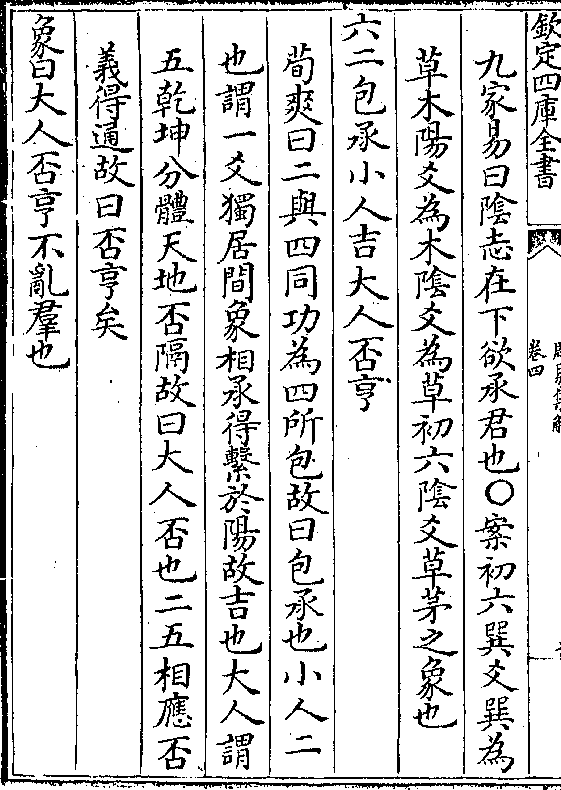 欽定四庫全書
卷四
九家易曰陰志在下欲承君也○案初六巽爻巽為
草木陽爻為木陰爻為草初六陰爻草茅之象也
六二包承小人吉大人否亨
荀爽曰二與四同功為四所包故曰包承也小人二
也謂一爻獨居間象相承得繫於陽故吉也大人謂
五乾坤分體天地否隔故曰大人否也二五相應否
義得通故曰否亨矣
象曰大人否亨不亂羣也